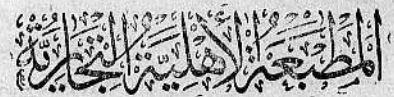 المطبعة الأهلية التجارية